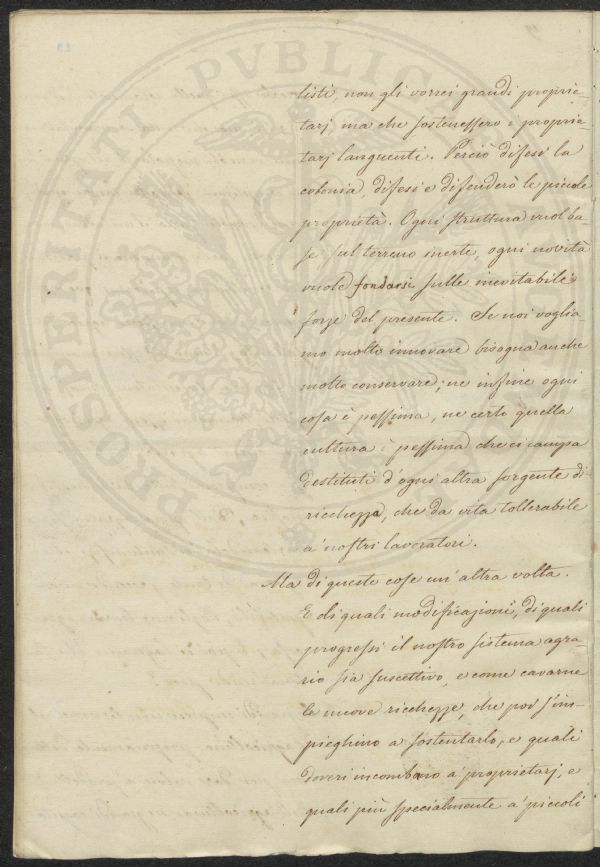 PROSPERITATI PVBLICAE
listi, non gli vorrei grandi proprie-
tarj, ma che sostenessero i proprie-
tarj languenti. Perciò difesi la
colonia, difesi e difenderò le piccole
proprietà. Ogni struttura vuol ba-
se sul terreno inerte, ogni novità
vuole fondarsi sulle inevitabili
forze del presente. Se noi voglia-
mo molto innovare bisogna anche
molto conservare; ne infine ogni
cosa è pessima, ne certo quella
cultura è pessima che ci campa
destituti d'ogni altra sorgente di
ricchezza, che da vita tollerabile
a' nostri lavoratori.
Ma di queste cose un'altra volta.
E di quali modificazioni, di quali
progressi il nostro sistema agra-
rio sia suscettivo, e come cavarne
le nuove ricchezze, che poi s'im-
pieghino a sostentarlo, e quali
doveri incombano a' proprietarj, e
quali più specialmente a' piccoli